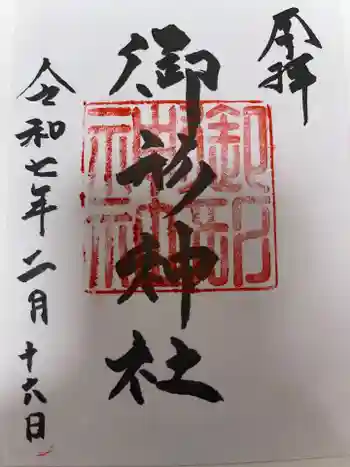 奉拝
御形神社
令和七年二月十六日